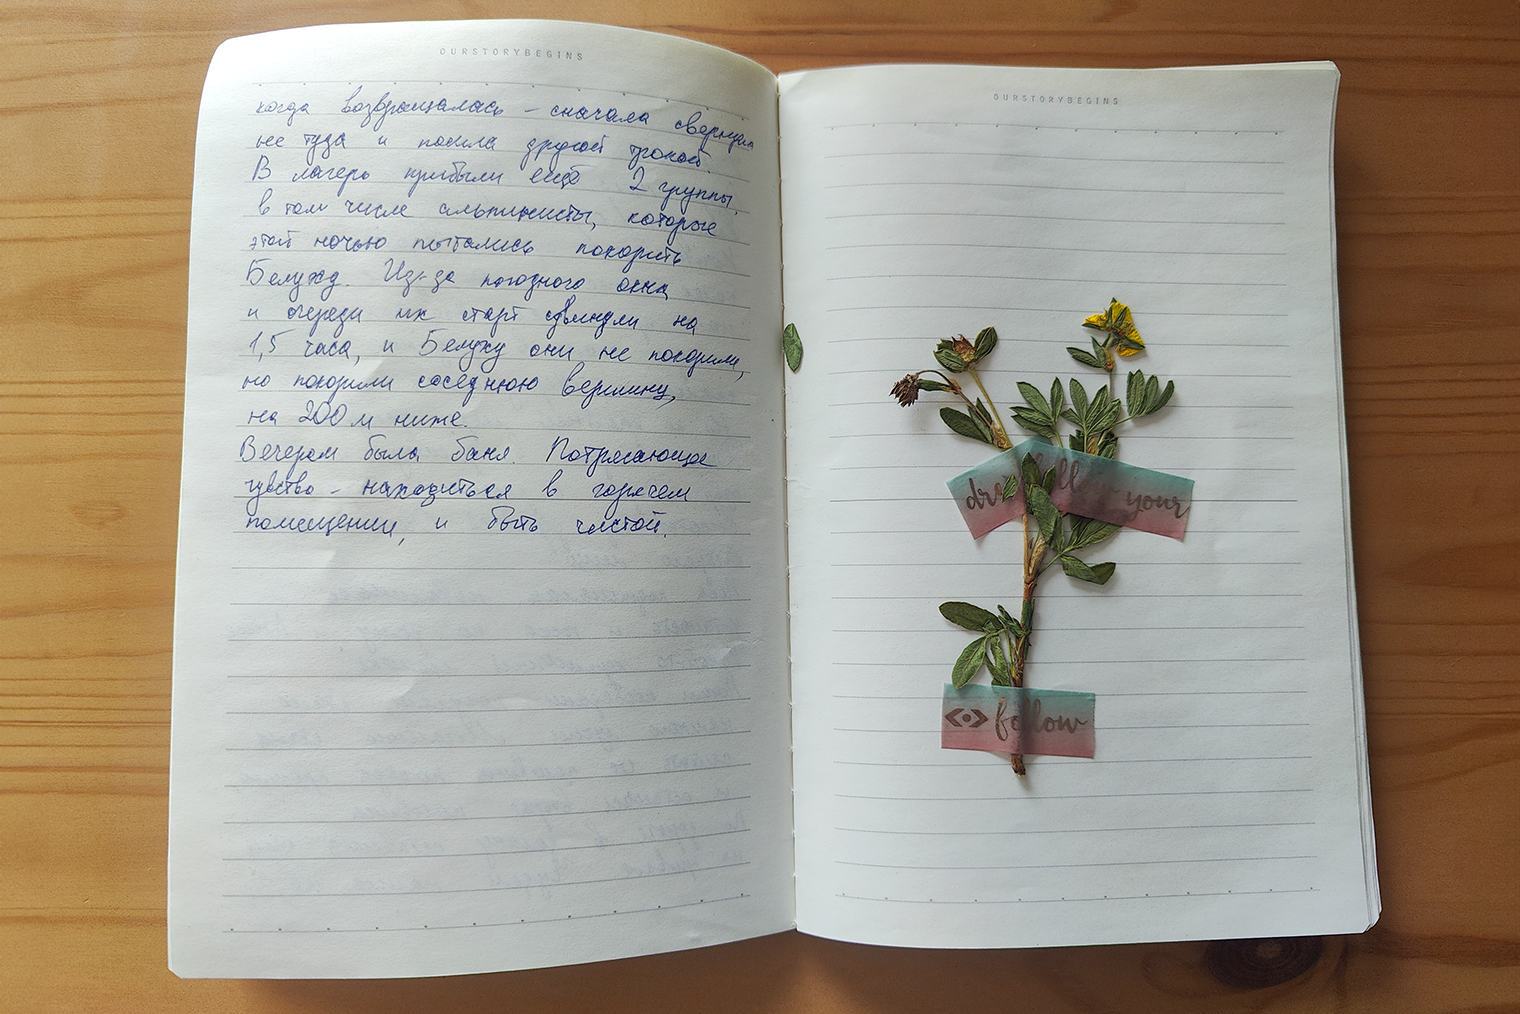 OURSTORYBEGINS
когда возвращалась – сначала свернула
не туда и пошла другой тропой.
В лагерь прибыли ещё 2 группы,
в том числе альпинисты, которые
этой ночью пытались покорить
Белуху. Из-за погодного окна
и очереди их старт сдвинули на
1,5 часа, и Белуху они не покорили,
но покорили соседнюю вершину,
на 200 м ниже.
Вечером была баня. Потрясающее
чувство – находиться в горячем
помещении, и быть чистой.
OURSTORYBEGINS
follow your
follow